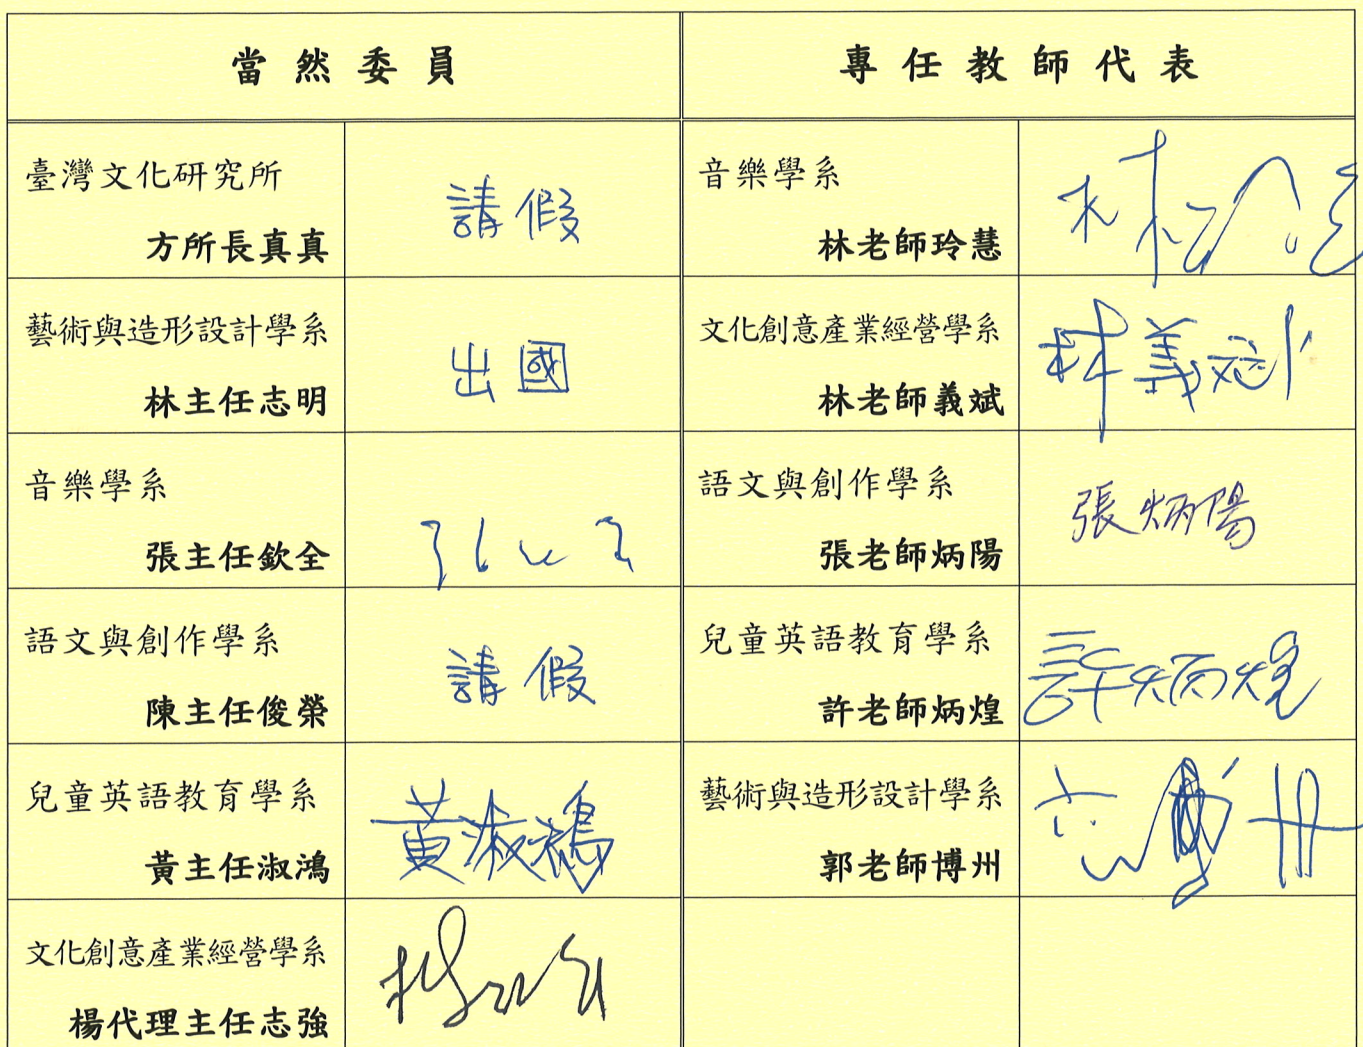 當然委員
專任教師代表
臺灣文化研究所
方所長真真
請假
音樂學系
林老師玲慧
藝術與造形設計學系
林主任志明
出國
文化創意產業經營學系
林老師義斌
林義斌
音樂學系
張主任欽全
語文與創作學系
張老師炳陽
張炳陽
語文與創作學系
陳主任俊榮
請假
兒童英語教育學系
許老師炳煌
許炳煌
兒童英語教育學系
黃主任淑鴻
黃淑鴻
藝術與造形設計學系
郭老師博州
文化創意產業經營學系
楊代理主任志強